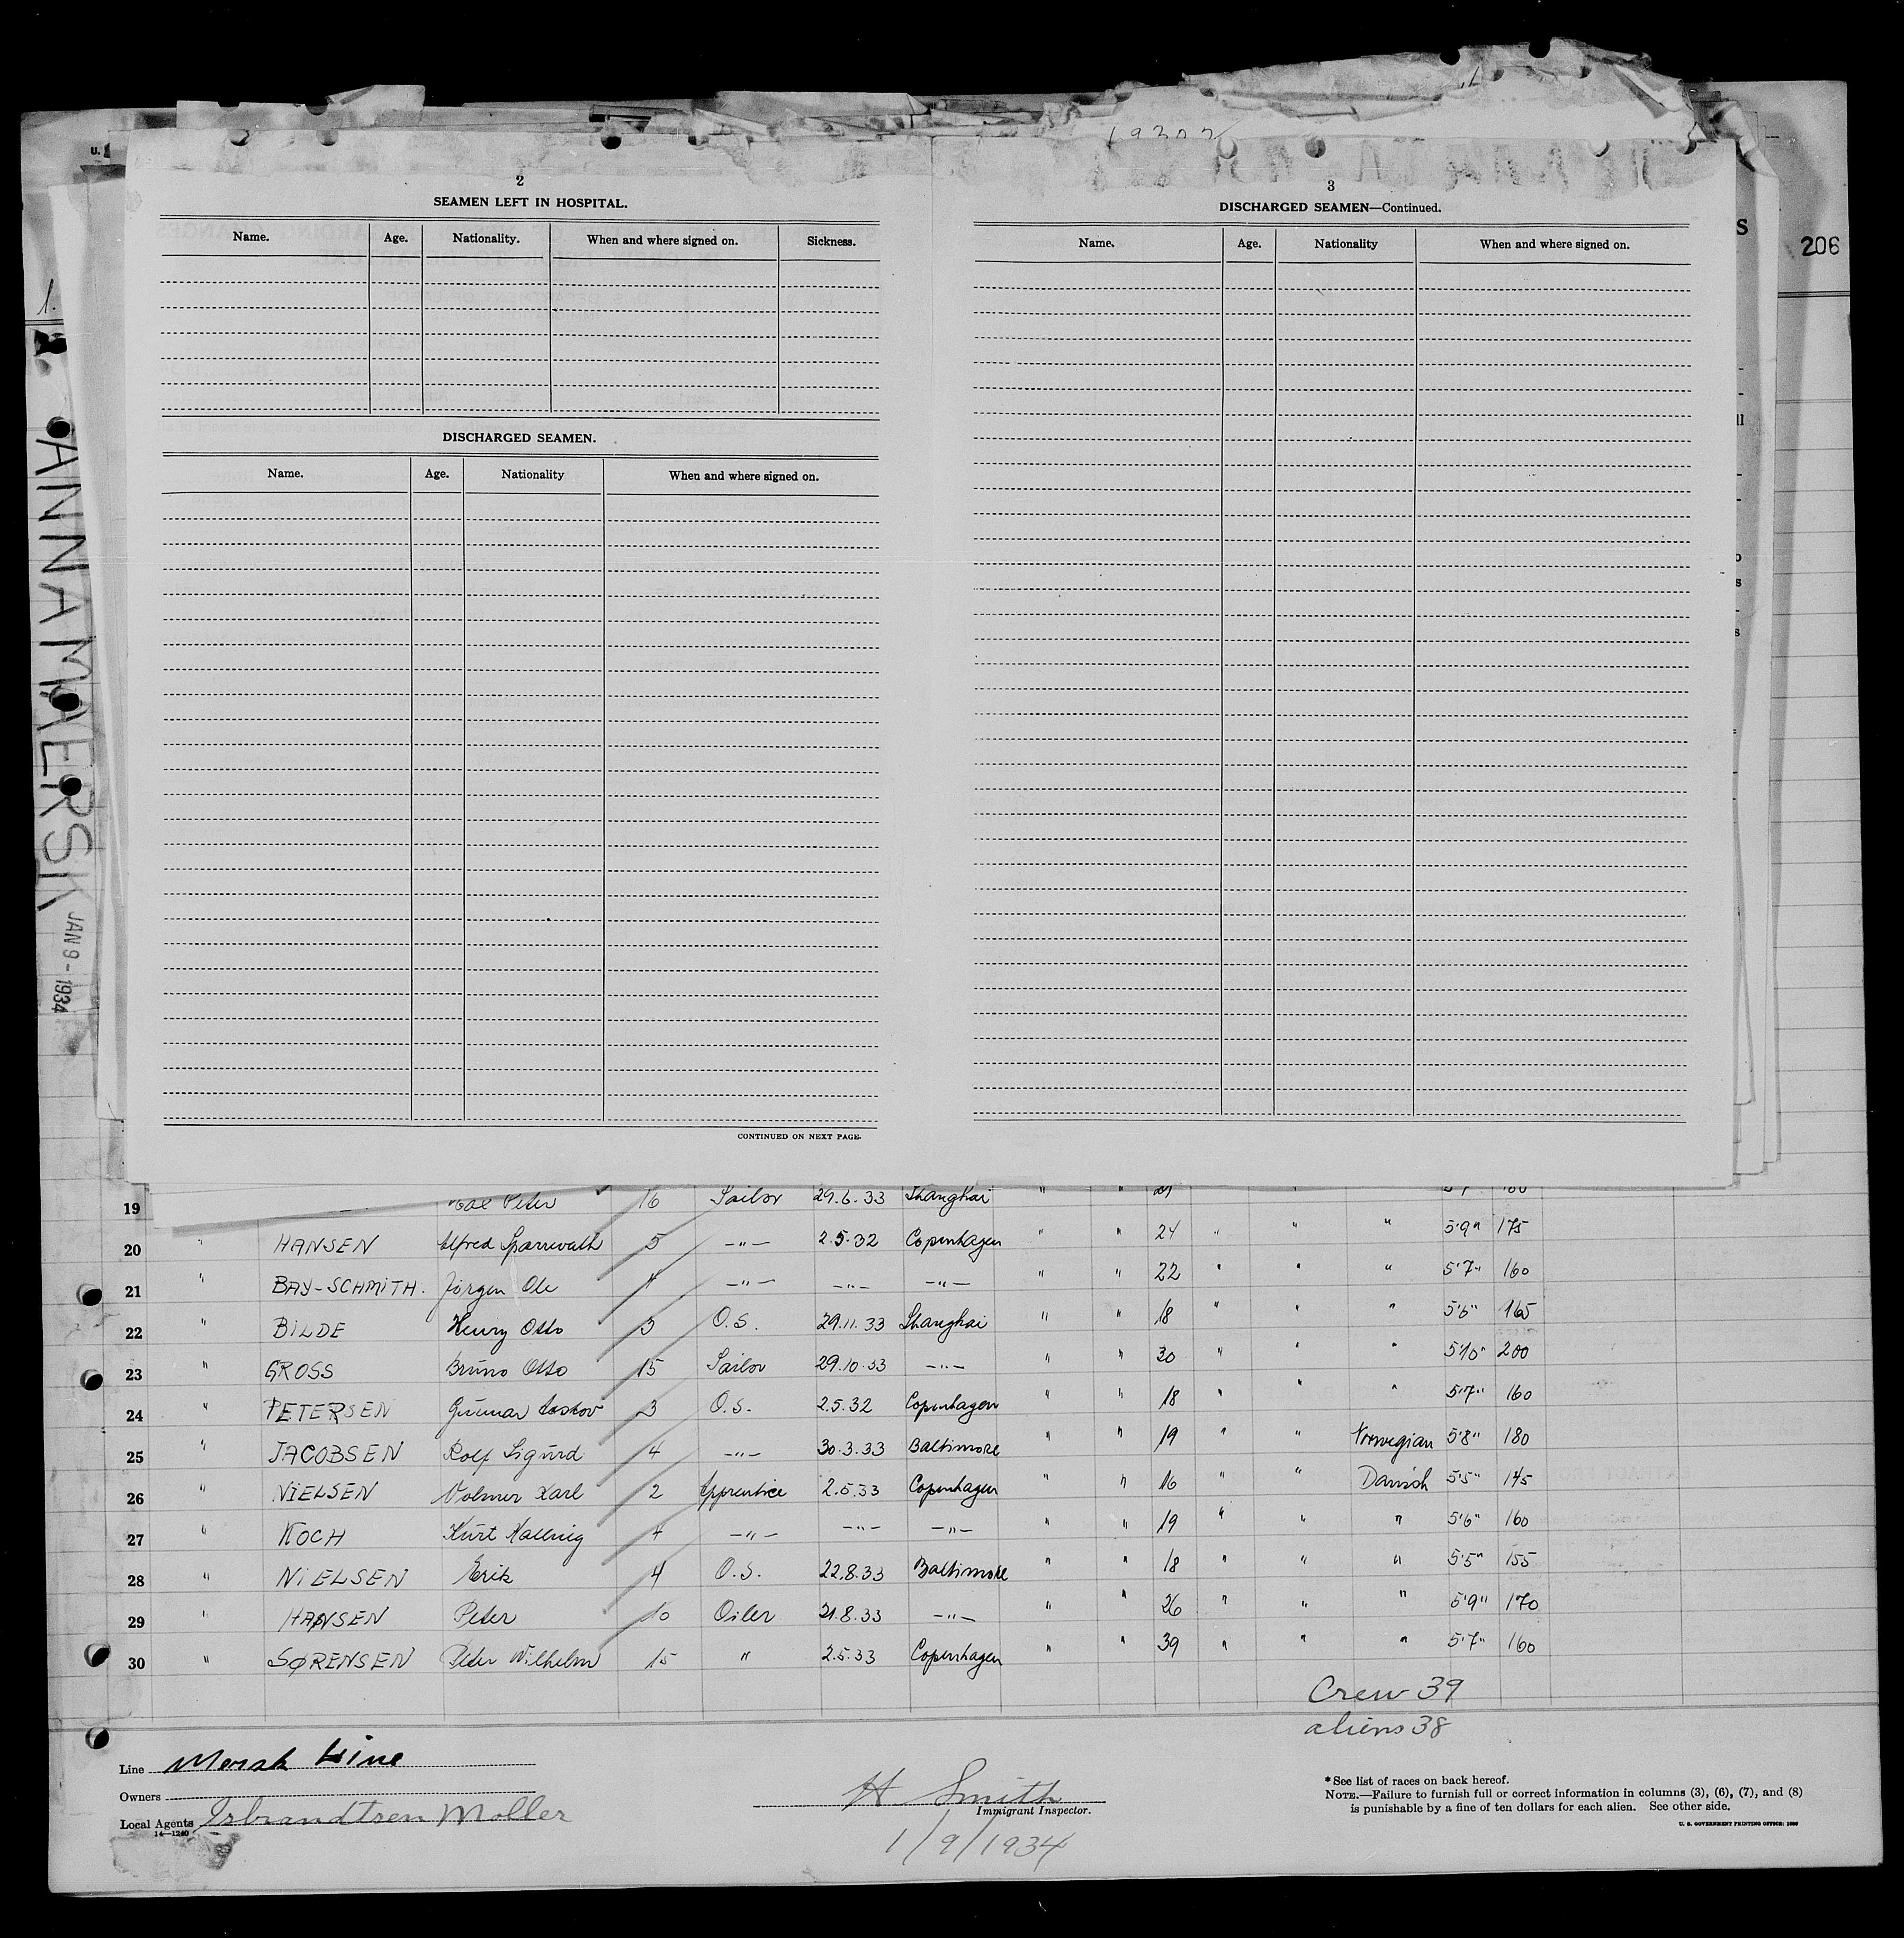 19302
U.
206
S
1.
ANNA MAERSK
JAN 9 - 1934
2
SEAMEN LEFT IN HOSPITAL.
Name. Age. Nationality. When and where signed on. Sickness.
DISCHARGED SEAMEN.
Name. Age. Nationality When and where signed on.
CONTINUED ON NEXT PAGE.
3
DISCHARGED SEAMEN—Continued.
Name. Age. Nationality When and where signed on.
19 Peter 16 Sailor 29.6.33 Shanghai " "
20 " HANSEN Alfred Sparrevath 5 —"— 2.5.32 Copenhagen " " 24 " " " 5'9" 175
21 " BAY-SCHMITH. Jörgen Ole 4 —"— —"— —"— " " 22 " " " 5'7" 160
22 " BILDE Henry Otto 3 O.S. 29.11.33 Shanghai " " 18 " " " 5'6" 165
23 " GROSS Bruno Otto 15 Sailor 29.10.33 —"— " " 30 " " " 5'10" 200
24 " PETERSEN Gunnar 3 O.S. 2.5.32 Copenhagen " " 18 " " " 5'7" 160
25 " JACOBSEN Rolf Sigurd 4 —"— 30.3.33 Baltimore " " 19 " " Norwegian 5'8" 180
26 " NIELSEN Volmer Karl 2 Apprentice 2.5.33 Copenhagen " " 16 " " Danish 5'5" 145
27 " KOCH Kurt 4 —"— —"— —"— " " 19 " " " 5'6" 160
28 " NIELSEN Erik 4 O.S. 22.8.33 Baltimore " " 18 " " " 5'5" 155
29 " HANSEN Peter 10 Oiler 21.8.33 —"— " " 26 " " " 5'9" 170
30 " SØRENSEN Peter Wilhelm 15 " 2.5.33 Copenhagen " " 39 " " " 5'7" 160
Crew 39
aliens 38
Line Mersk Line
Owners
Local Agents Isbrandtsen Moller
14—1240
H Smith
Immigrant Inspector.
1/9/1934
*See list of races on back hereof.
NOTE.—Failure to furnish full or correct information in columns (3), (6), (7), and (8)
is punishable by a fine of ten dollars for each alien. See other side.
U. S. GOVERNMENT PRINTING OFFICE: